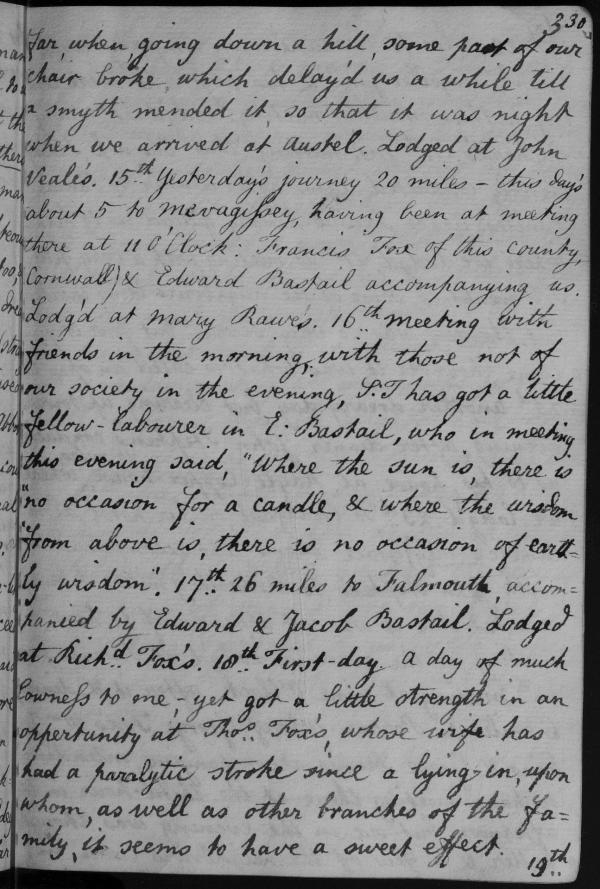 330
far, when going down a hill, some part of our
chair broke, which delay'd us a while till
a smyth mended it, so that it was night
when we arrived at Austel. Lodged at John
Veale's. 15th Yesterday's journey 20 miles – this day's
about 5 to Mevagissey, having been at meeting
there at 11 O'Clock: Francis Fox of this county,
Cornwall) & Edward Bastail accompanying us.
Lodg'd at Mary Rawe's. 16th meeting with
friends in the morning, with those not of
our society in the evening, S.T has got a little
fellow-labourer in E: Bastail, who in meeting
this evening said, "Where the sun is, there is
"no occasion for a candle, & where the wisdom
"from above is, there is no occasion of earth=
ly wisdom". 17th 26 miles to Falmouth, accom=
panied by Edward & Jacob Bastail. Lodged
at Richd Fox's. 18th First-day. a day of much
lowness to me, – yet got a little strength in an
oppertunity at Thos Fox's, whose wife has
had a paralytic stroke since a lying-in, upon
whom, as well as other branches of the fa=
mily, it seems to have a sweet effect.
19th